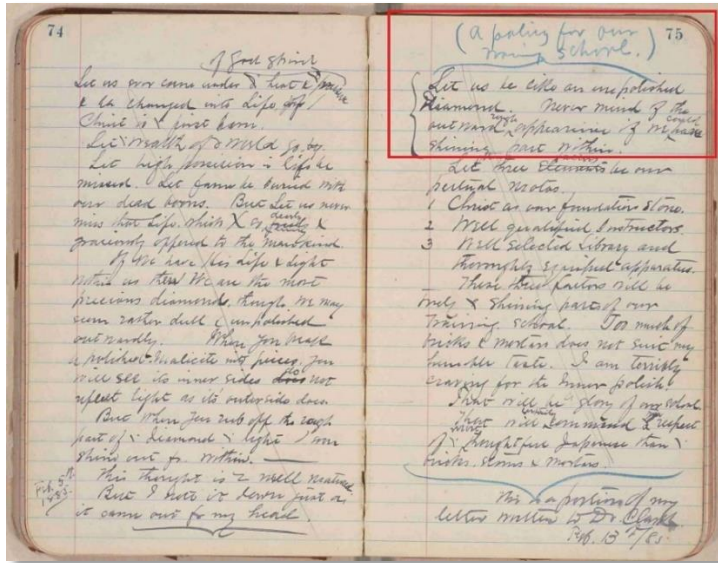 74
of God
Let us ever come under
& be changed into Life, of
Christ is & just born.
Let wealth of world go by.
Let high position in life be
missed. Let fame be buried with
our dead bones. But Let us never
miss that Life, which X so dearly &
graciously offered to the mankind.
If We have His Life & Light
within us then We are the most
precious diamonds, though we may
seem rather dull & unpolished
outwardly. When you break
a polished into pieces, you
will see its inner sides do not
reflect light as its outerside does.
But when you rub off the rough
part of diamond light
shine out fr. within.
This thought is not well matured
But I note it down just as
it came out fr my head
Feb. 5th
1885
75
(a policy for our
school.)
Let us be like an unpolished
diamond. Never mind of the
outward rough appearance if we could have
shining part within.
Let three factors be our
petual motos.
1 Christ as our foundation stone.
2 Well qualified Instructors.
3 Well selected Library and
thoroughly equipped apparatus.
These three factors will be
& shining part of our
Training School. Too much of
bricks & mortars does not suit my
humble taste. I am terribly
craving for the inner polish.
That will be glory of our school.
That will command respect
of thoughtful Japanese than
bricks, stones & mortars.
This is a portion of my
letter written to Dr. Clark
Feb. 13th/85